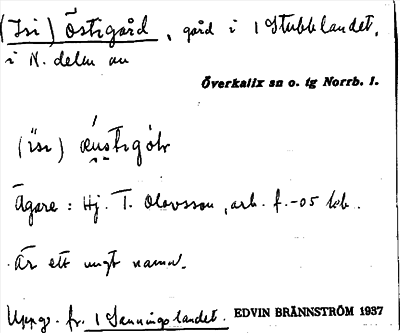 (Isi) Östigård, gård i 1 Stubblandet,
i N. delen av
Överkalix sn o. tg Norrb. l.
(isi) æustigo̊ḷr
Ägare: Hj. T. Olovsson, arb. f. -05 teb.
Är ett ungt namn.
Uppg. fr. 1 Sanningslandet. EDVIN BRÄNNSTRÖM 1937